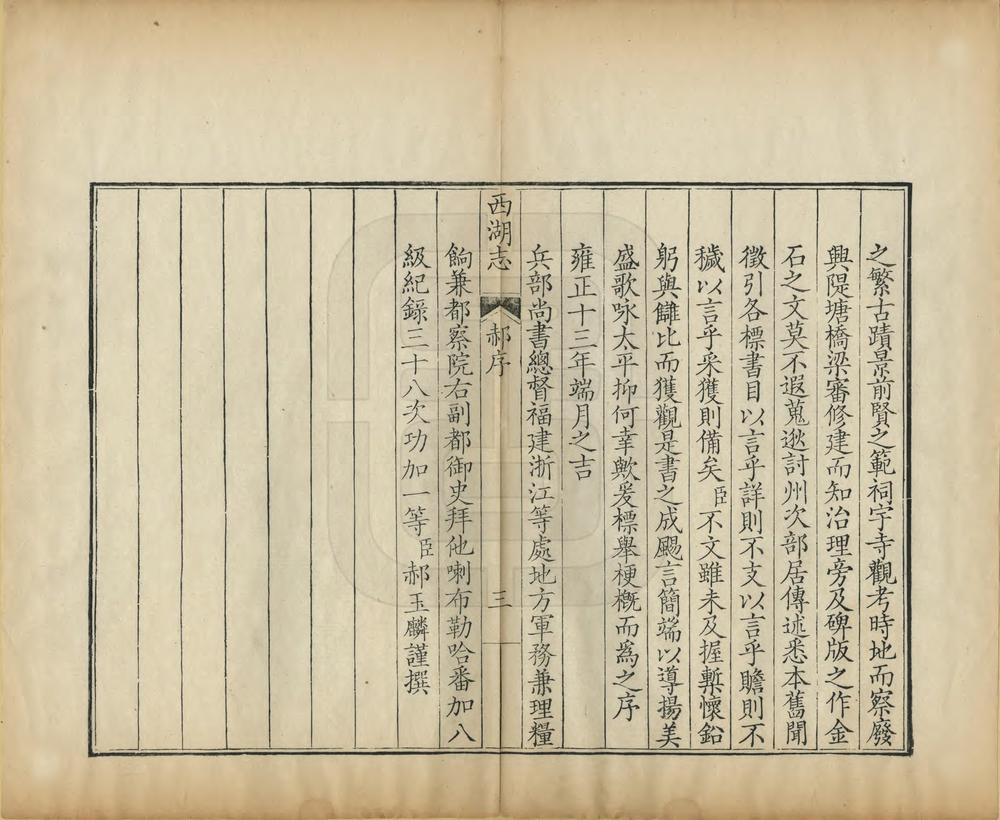 之繁古蹟景前賢之範祠宇寺觀考時地而察廢
興隄塘橋梁審修建而知治理旁及碑版之作金
石之文莫不遐蒐逖討州次部居傳述悉本舊聞
徵引各標書目以言乎詳則不支以言乎贍則不
穢以言乎采獲則備矣臣不文雖未及握槧懷鉛
躬與讎比而獲觀是書之成颺言簡端以導揚美
盛歌咏太平抑何幸歟爰標舉梗概而為之序
雍正十三年端月之吉
兵部尚書總督福建浙江等處地方軍務兼理糧
西湖志 郝序 三
餉兼都察院右副都御史拜他喇布勒哈番加八
級紀錄三十八次功加一等臣郝玉麟謹撰